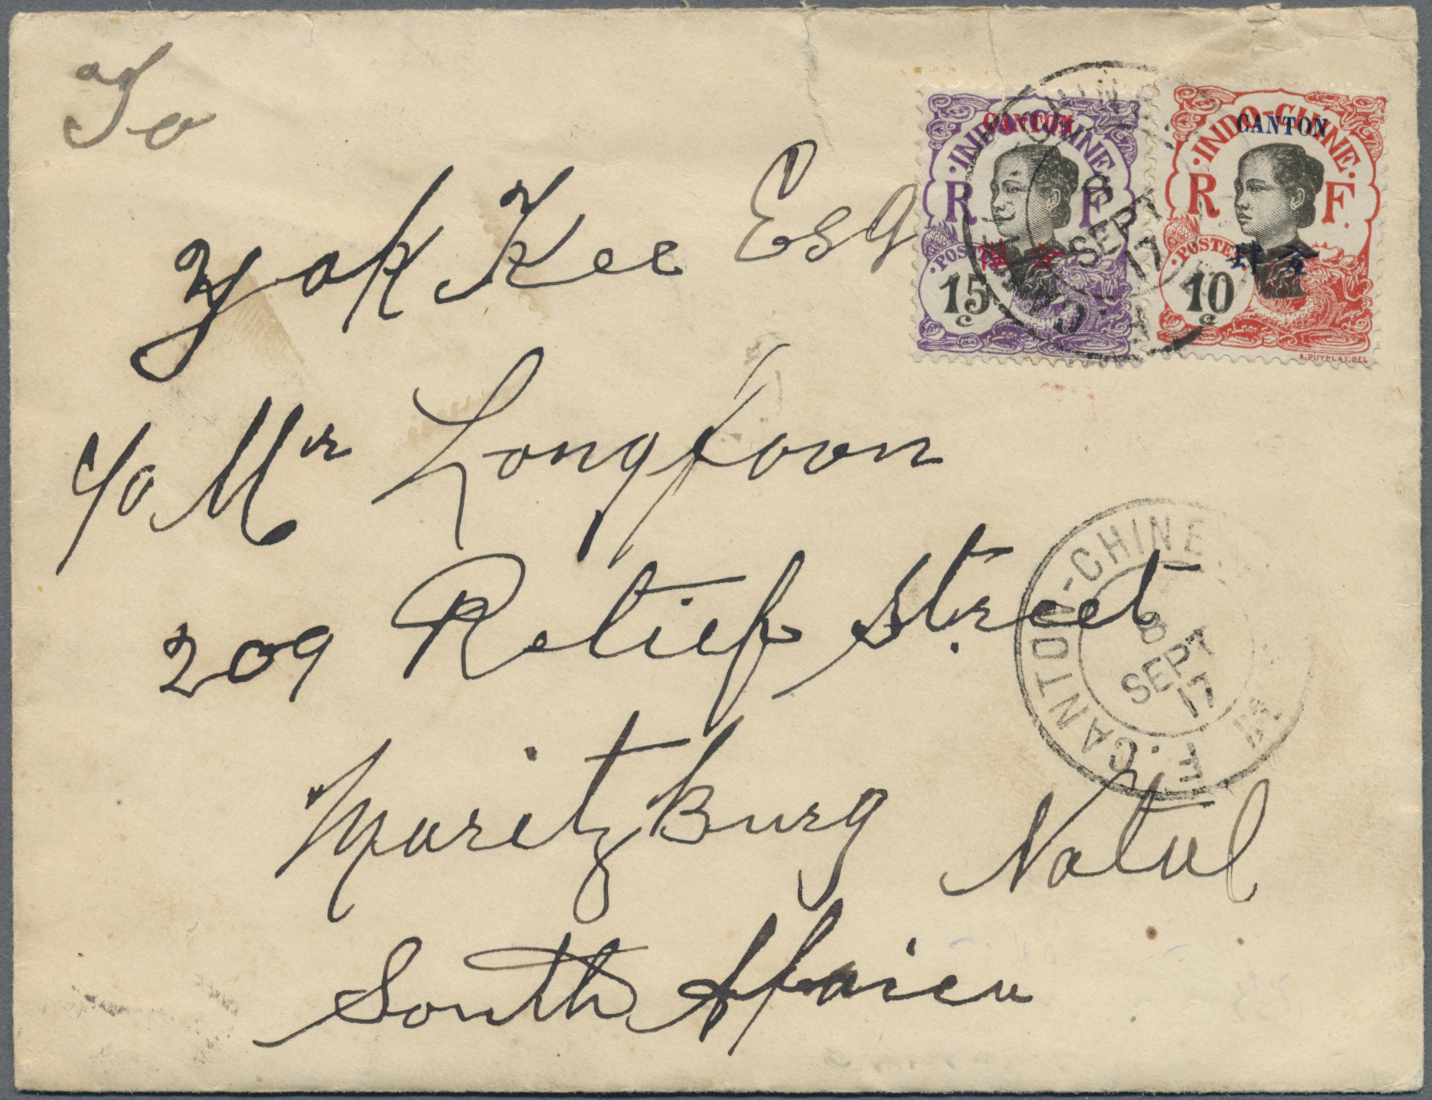 To
Yak Kee Esq
c/o Mr Longfoon
209 Relief Street
Maritzburg Natal
South Africa
INDO-CHINE
CANTON
R F
POSTES
15
c
INDO-CHINE
CANTON
R F
POSTES
10
c
A. PUYPLAT. DEL
8
SEPT
17
CANTON-CHINE
8
SEPT
17